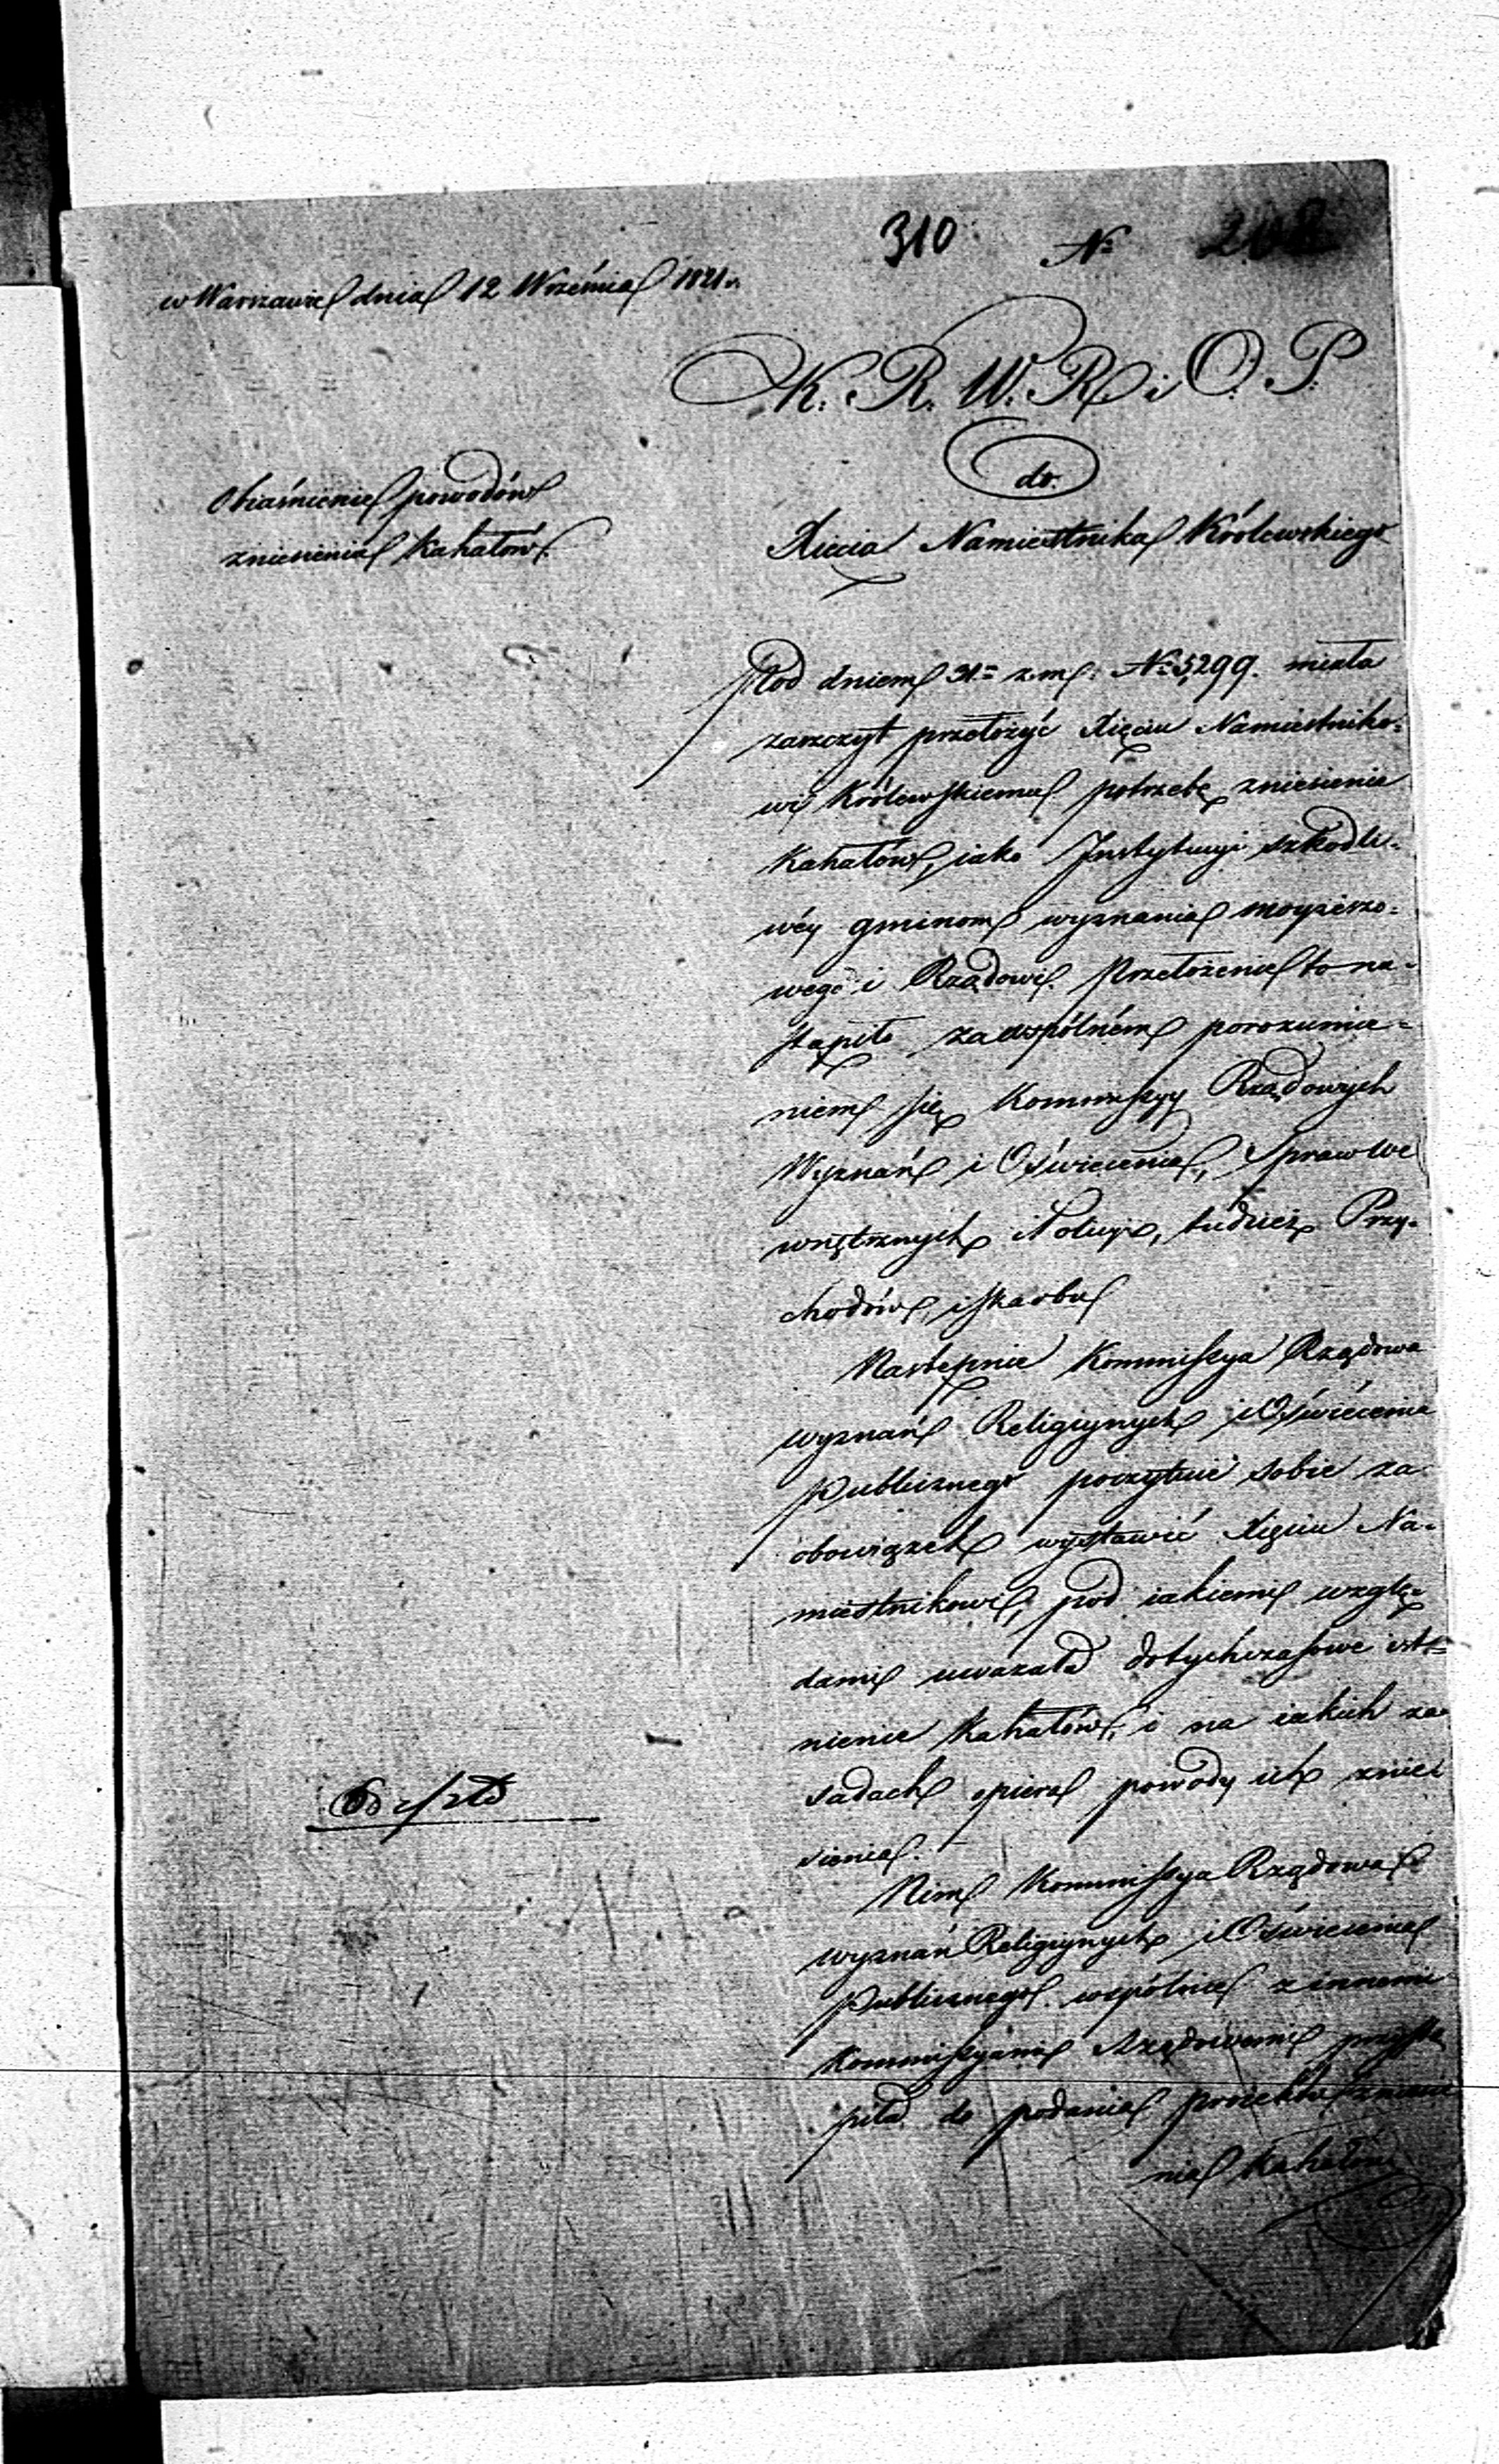 310 № 208
w Warszawie dnia 12 Września 1821 r.
K. R. W. R. i O. P.
do
Xięcia Namiestnika Królewskiego
Obiaśnienie powodów
zniesienia Kahałów.
Pod dniem 31= z. m. № 5,299. miała
zaszczyt przełożyć Xięciu Namiestniko=
wi Królewskiemu potrzebę zniesienia
Kahałów, iako Instytucyi szkodli=
wéy gminom wyznania moyżeszo=
wego i Rządowi. Przełożenie to na=
stąpiło za wspólném porozumie=
niem się Kommissyy Rządowych
Wyznań i Oświecenia, Spraw We
wnętrznych i Policyi, tudzież Przy=
chodów i skarbu
Następnie Kommissya Rządowa
wyznań Religiynych i Oświécenia
Publicznego poczytuie sobie za
obowiązek wystawić Xięciu Na=
miestnikowi, pod iakiemi wzglę=
dami uważała dotychczasowe ist=
nienie Kahałów, i na iakich za
sadach opiera powody ich znie=
sienia.
Odeszło
Nim Kommissya Rządowa
wyznań Religiynych i Oświecenia
Publicznego wspólnie z innemi
Kommissyami Rządowemi przystą
piła do podania proiektu zniesie
nia Kahałów